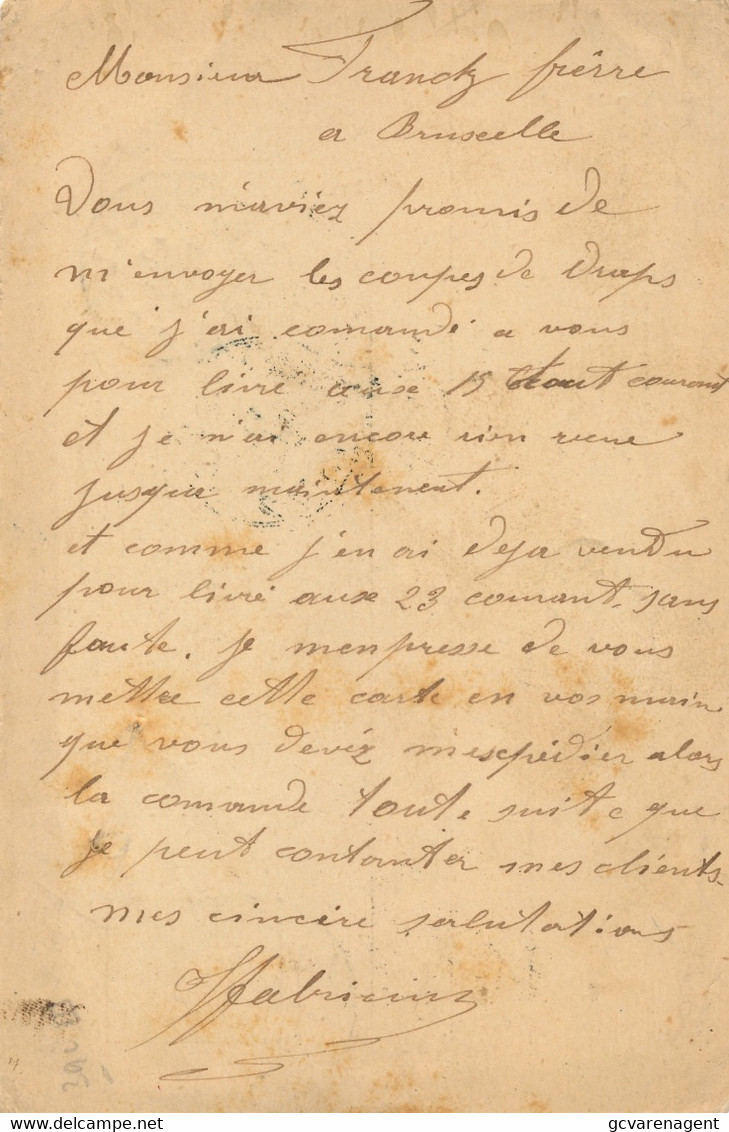 Monsieur Franck frérre
a Bruxelle
Vous m'aviez promis de
m'envoyer les coupes de draps
que j'ai comandé a vous
pour livré auxe 15 courant
et je n'ai encore rien recue
jusqua maintenent.
et comme j'en ai deja vendu
pour livré auxe 23 courant. sans
faute. je m'enpresse de vous
mettre cette carte en vos main
que vous devéz m'expédier alors
la comande toute suite que
je peut contanter mes clients.
mes cincère salutations
delcampe.net
gcvarenagent